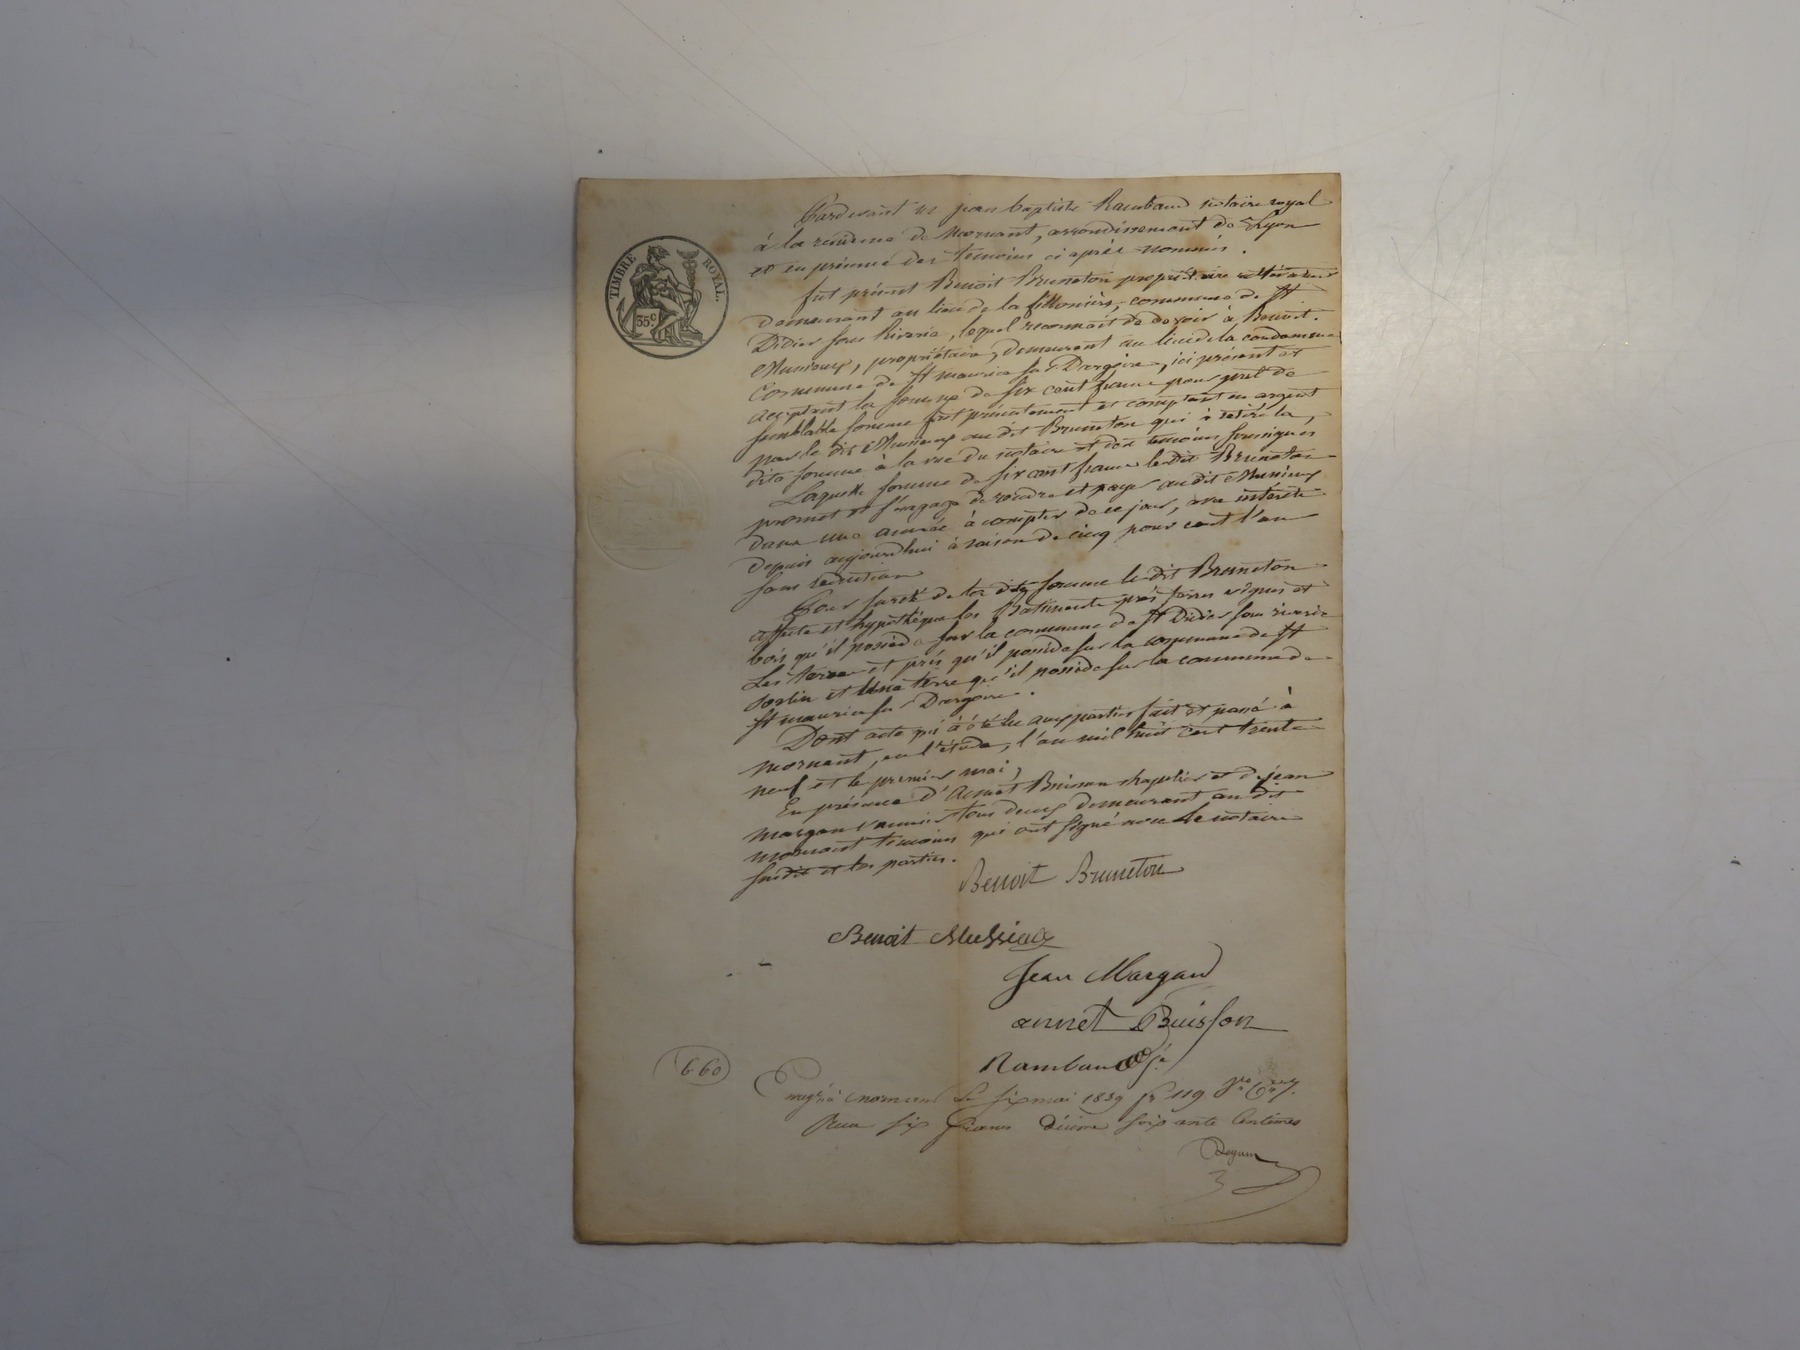 TIMBRE ROYAL.
35c.
Pardevant Me jean baptiste Rambaud notaire royal
à la residence de Mornant, arrondissement de Lyon
et en présence des temoins ci après nommés.
fut présent Benoit Bruneton propriétaire
demeurant au lieu de la fillonière, commune de St
Didier sous Riverie, lequel reconnait de devoir à Benoit
Mussieux, propriétaire, demeurant au lieu de la condamine
Commune de St maurice sur Dargoire, ici présent et
acceptant la somme de six cent francs pour prêt de
semblable somme fait présentement et comptant en argent
par le dit Mussieux au dit Bruneton qui à retiré la
dite somme à la vue du notaire et des temoins soussignés
Laquelle somme de six cent francs le dit Bruneton
promet et s'engage de rendre et payer au dit Mussieux
dans une année à compter de ce jour, avec intérêts
depuis aujourdhui à raison de cinq pour cent l'an
sans retention
Pour sureté de la dite somme le dit Bruneton
affecte et hypothèque les Batiments prés terres vignes et
bois qu'il possède sur la commune de St Didier sous riverie
Les terres et prés qu'il possède sur la commune de St
Sorlin et Une terre qu'il possède sur la commune de
St maurice sur Dargoire.
Dont acte qui à été lu aux parties fait et passé à
mornant, en l'étude, l'an mil huit cent trente
neuf et le premier mai,
En présence d'Annet Buisson chapelier et de jean
margan tous deux demeurant au dit
mornant temoins qui ont signé avec Le notaire
susdit et les parties.
Benoit Bruneton
Benoit Mussieux
Jean Margan
annet Buisson
Rambaud
660
Enregtré à mornant Le six mai 1839 fo 119
Reçu six francs décime soixante Centimes